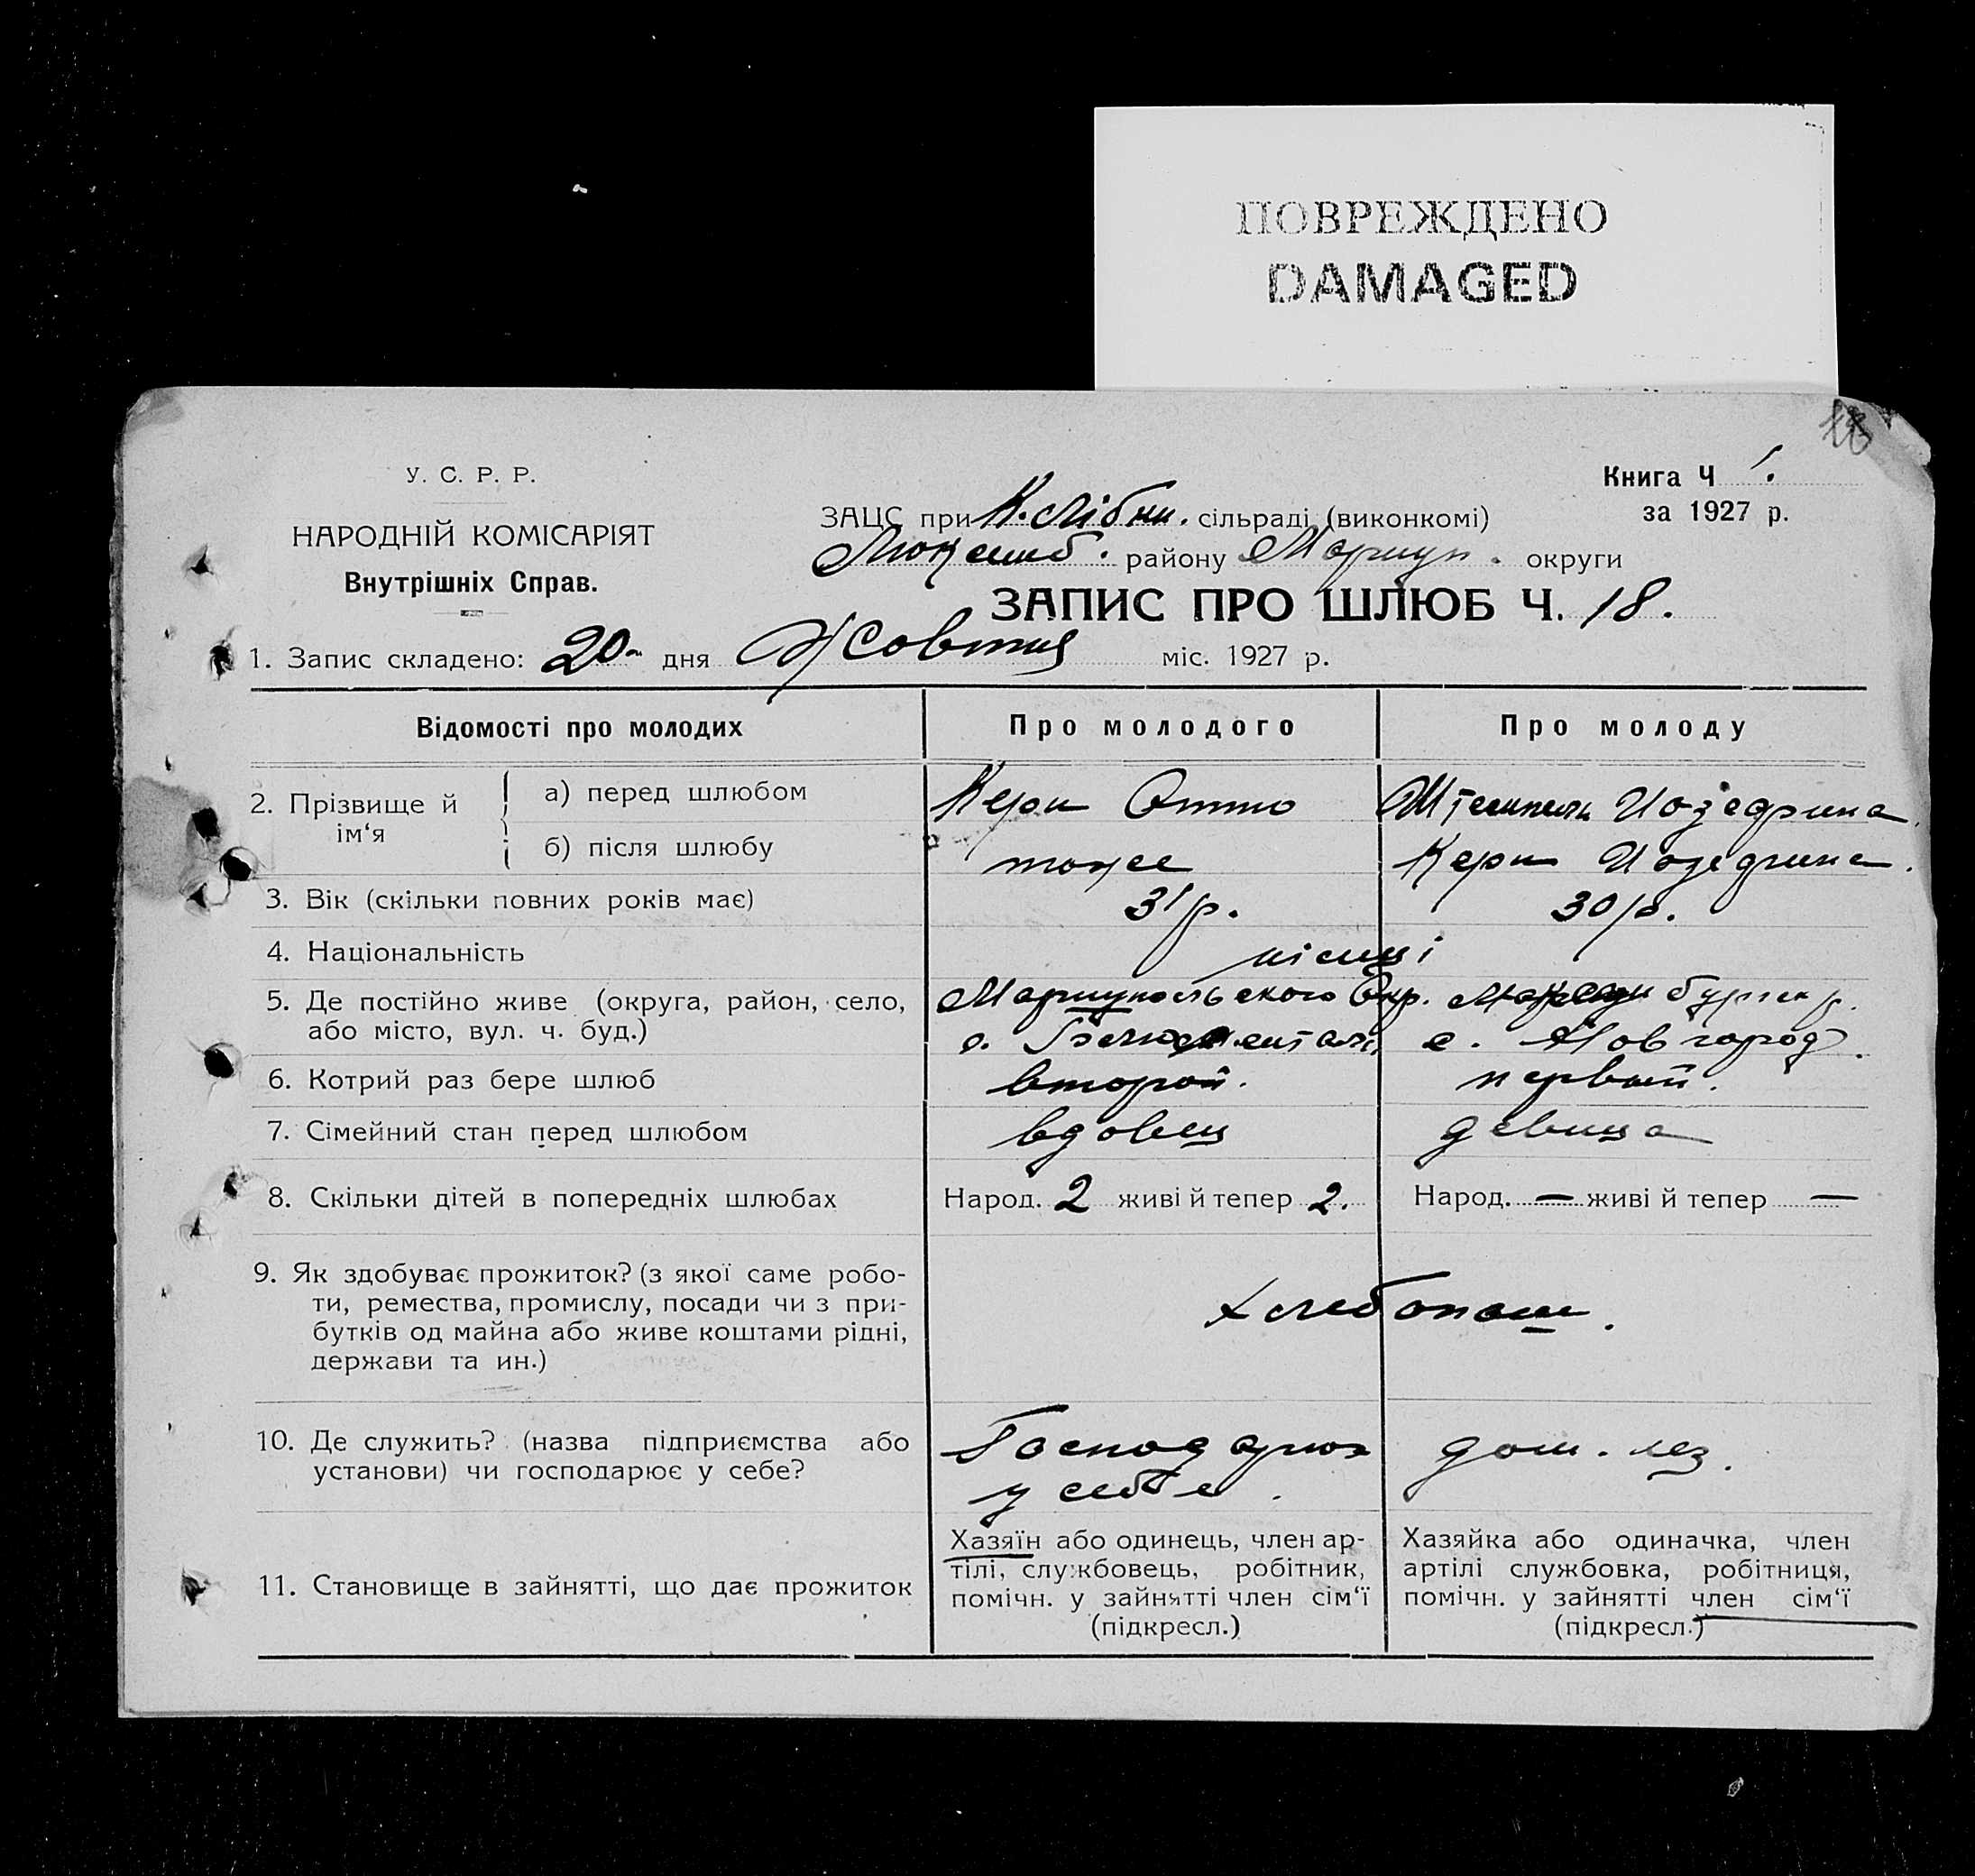 ПОВРЕЖДЕНО
DAMAGED
18
У. С. Р. Р.
НАРОДНІЙ КОМІСАРІЯТ
Внутрішніх Справ.
Книга Ч 1.
за 1927 р.
ЗАЦС при К. Лібкн. сільраді (виконкомі)
Люксемб. району Маріуп. округи
ЗАПИС ПРО ШЛЮБ Ч. 18.
1. Запис складено: 20 дня Жовтня міс. 1927 р.
Відомості про молодих
Про молодого
Про молоду
2. Прізвище й ім‘я
а) перед шлюбом
Керн Отто
Штемпель Иозефина
б) після шлюбу
тоже
Керн Иозефина.
3. Вік (скільки повних років має)
31 р.
30 р.
4. Національність
німці
5. Де постійно живе (округа, район, село,
або місто, вул. ч. буд.)
Мариупольского Окр.
с.
бургск р.
с. Новгород.
6. Котрий раз бере шлюб
второй.
первый.
7. Сімейний стан перед шлюбом
вдовец
девица
8. Скільки дітей в попередніх шлюбах
Народ. 2 живі й тепер 2.
Народ. — живі й тепер —
9. Як здобуває прожиток? (з якої саме робо-
ти, ремества, промислу, посади чи з при-
бутків од майна або живе коштами рідні,
держави та ин.)
хлебопаш.
10. Де служить? (назва підприємства або
установи) чи господарює у себе?
Господарює
у себе.
дом. хоз.
11. Становище в зайнятті, що дає прожиток
Хазяїн або одинець, член ар-
тілі, службовець, робітник,
помічн. у зайнятті член сім‘ї
(підкресл.)
Хазяйка або одиначка, член
артілі службовка, робітниця,
помічн. у зайнятті член сім‘ї
(підкресл.)